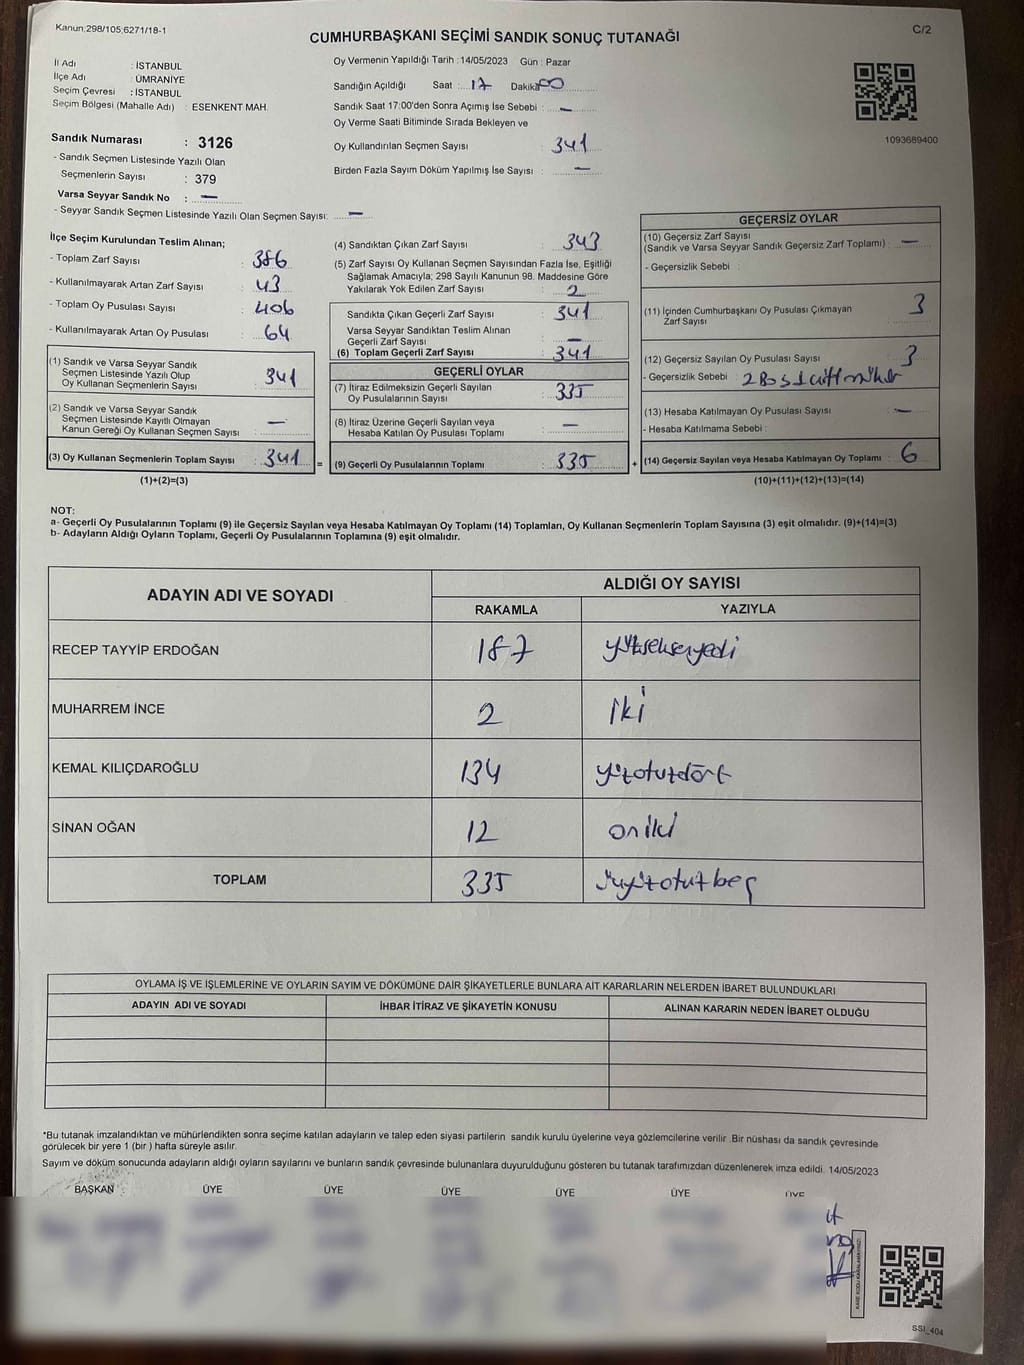 Kanun;298/105;6271/18-1
C/2
CUMHURBAŞKANI SEÇİMİ SANDIK SONUÇ TUTANAĞI
İl Adı : İSTANBUL
İlçe Adı : ÜMRANİYE
Seçim Çevresi : İSTANBUL
Seçim Bölgesi (Mahalle Adı) : ESENKENT MAH.
Sandık Numarası : 3126
- Sandık Seçmen Listesinde Yazılı Olan
Seçmenlerin Sayısı : 379
Varsa Seyyar Sandık No : —
- Seyyar Sandık Seçmen Listesinde Yazılı Olan Seçmen Sayısı: —
Oy Vermenin Yapıldığı Tarih :14/05/2023 Gün : Pazar
Sandığın Açıldığı Saat : 17 Dakika 00
Sandık Saat 17:00'den Sonra Açımış İse Sebebi : —
Oy Verme Saati Bitiminde Sırada Bekleyen ve
Oy Kullandırılan Seçmen Sayısı 341
Birden Fazla Sayım Döküm Yapılmış İse Sayısı : —
1093689400
İlçe Seçim Kurulundan Teslim Alınan;
- Toplam Zarf Sayısı : 386
- Kullanılmayarak Artan Zarf Sayısı : 43
- Toplam Oy Pusulası Sayısı : 406
- Kullanılmayarak Artan Oy Pusulası : 64
(1) Sandık ve Varsa Seyyar Sandık
Seçmen Listesinde Yazılı Olup
Oy Kullanan Seçmenlerin Sayısı : 341
(2) Sandık ve Varsa Seyyar Sandık
Seçmen Listesinde Kayıtlı Olmayan
Kanun Gereği Oy Kullanan Seçmen Sayısı : —
(3) Oy Kullanan Seçmenlerin Toplam Sayısı : 341 =
(1)+(2)=(3)
(4) Sandıktan Çıkan Zarf Sayısı : 343
(5) Zarf Sayısı Oy Kullanan Seçmen Sayısından Fazla İse, Eşitliği
Sağlamak Amacıyla; 298 Sayılı Kanunun 98. Maddesine Göre
Yakılarak Yok Edilen Zarf Sayısı : 2
Sandıkta Çıkan Geçerli Zarf Sayısı : 341
Varsa Seyyar Sandıktan Teslim Alınan
Geçerli Zarf Sayısı : —
(6) Toplam Geçerli Zarf Sayısı : 341
GEÇERLİ OYLAR
(7) İtiraz Edilmeksizin Geçerli Sayılan
Oy Pusulalarının Sayısı : 335
(8) İtiraz Üzerine Geçerli Sayılan veya
Hesaba Katılan Oy Pusulası Toplamı : —
(9) Geçerli Oy Pusulalarının Toplamı : 335 +
GEÇERSİZ OYLAR
(10) Geçersiz Zarf Sayısı
(Sandık ve Varsa Seyyar Sandık Geçersiz Zarf Toplamı) : —
- Geçersizlik Sebebi :
(11) İçinden Cumhurbaşkanı Oy Pusulası Çıkmayan
Zarf Sayısı 3
(12) Geçersiz Sayılan Oy Pusulası Sayısı : 3
- Geçersizlik Sebebi : 2 Boş 1 çift mühür
(13) Hesaba Katılmayan Oy Pusulası Sayısı : —
- Hesaba Katılmama Sebebi :
(14) Geçersiz Sayılan veya Hesaba Katılmayan Oy Toplamı : 6
(10)+(11)+(12)+(13)=(14)
NOT:
a- Geçerli Oy Pusulalarının Toplamı (9) ile Geçersiz Sayılan veya Hesaba Katılmayan Oy Toplamı (14) Toplamları, Oy Kullanan Seçmenlerin Toplam Sayısına (3) eşit olmalıdır. (9)+(14)=(3)
b- Adayların Aldığı Oyların Toplamı, Geçerli Oy Pusulalarının Toplamına (9) eşit olmalıdır.
ADAYIN ADI VE SOYADI
ALDIĞI OY SAYISI
RAKAMLA YAZIYLA
RECEP TAYYİP ERDOĞAN 187 yüzseksenyedi
MUHARREM İNCE 2 iki
KEMAL KILIÇDAROĞLU 134 yüzotuzdört
SİNAN OĞAN 12 oniki
TOPLAM 335 üçyüzotuzbeş
OYLAMA İŞ VE İŞLEMLERİNE VE OYLARIN SAYIM VE DÖKÜMÜNE DAİR ŞİKAYETLERLE BUNLARA AİT KARARLARIN NELERDEN İBARET BULUNDUKLARI
ADAYIN ADI VE SOYADI İHBAR İTİRAZ VE ŞİKAYETİN KONUSU ALINAN KARARIN NEDEN İBARET OLDUĞU
*Bu tutanak imzalandıktan ve mühürlendikten sonra seçime katılan adayların ve talep eden siyasi partilerin sandık kurulu üyelerine veya gözlemcilerine verilir .Bir nüshası da sandık çevresinde
görülecek bir yere 1 (bir ) hafta süreyle asılır.
Sayım ve döküm sonucunda adayların aldığı oyların sayılarını ve bunların sandık çevresinde bulunanlara duyurulduğunu gösteren bu tutanak tarafımızdan düzenlenerek imza edildi. 14/05/2023
BAŞKAN ÜYE ÜYE ÜYE ÜYE ÜYE ÜYE
KARE KODU KARALAMAYINIZ!
SSI_404